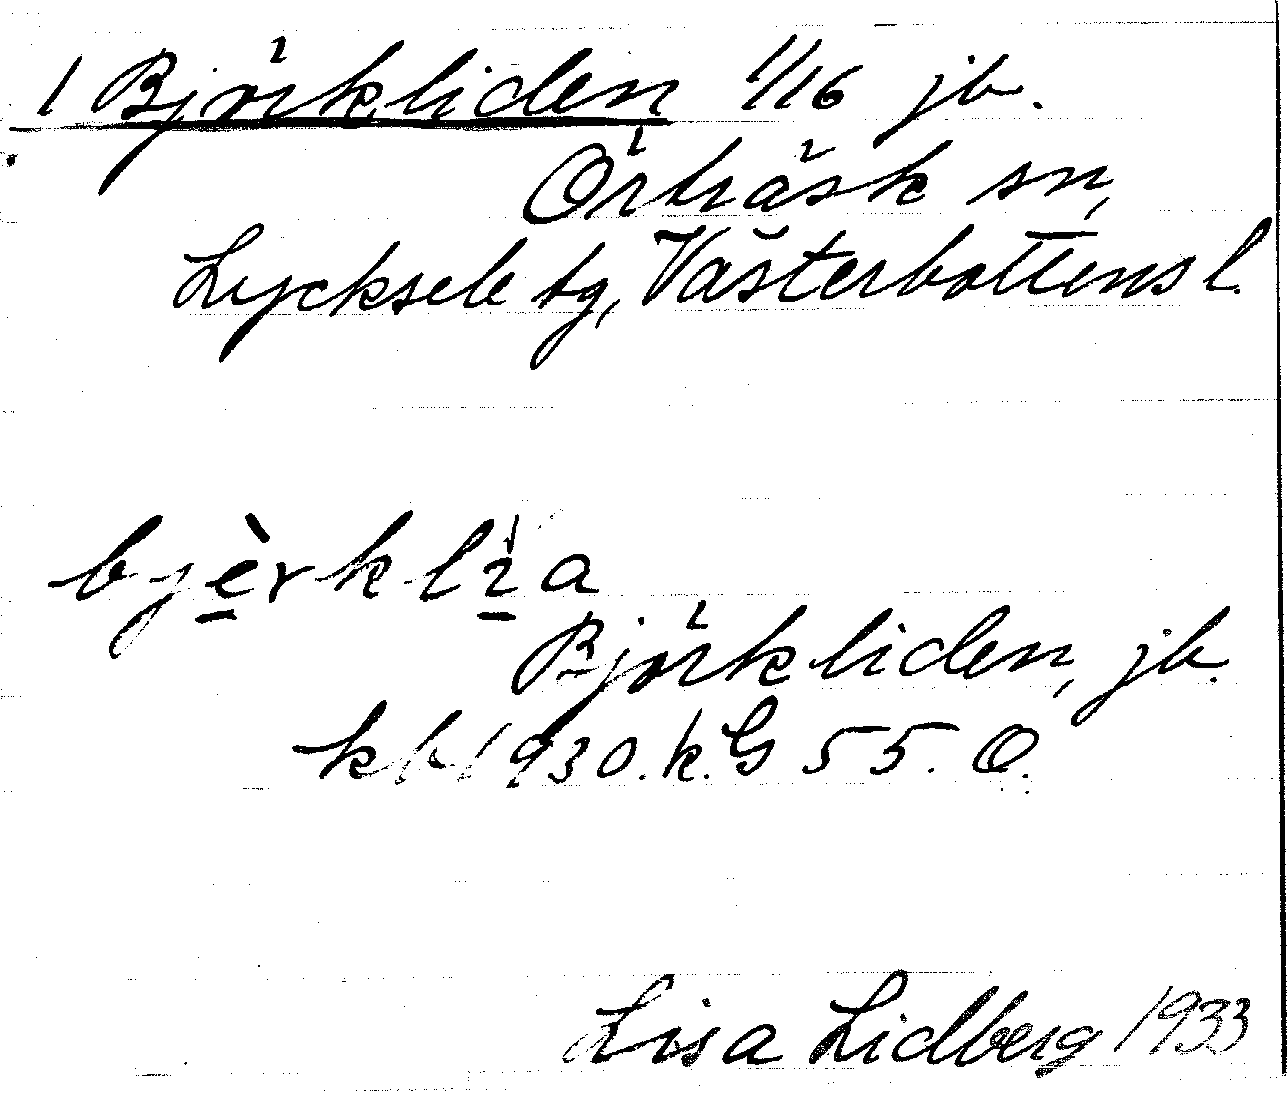 1 Björkliden 1/16 jb.
Örträsk sn,
Lycksele tg, Västerbottens l.
bjèrklìa
Björkliden, jb.
kb 1930. k. G 55. O.
Lisa Lidberg 1933